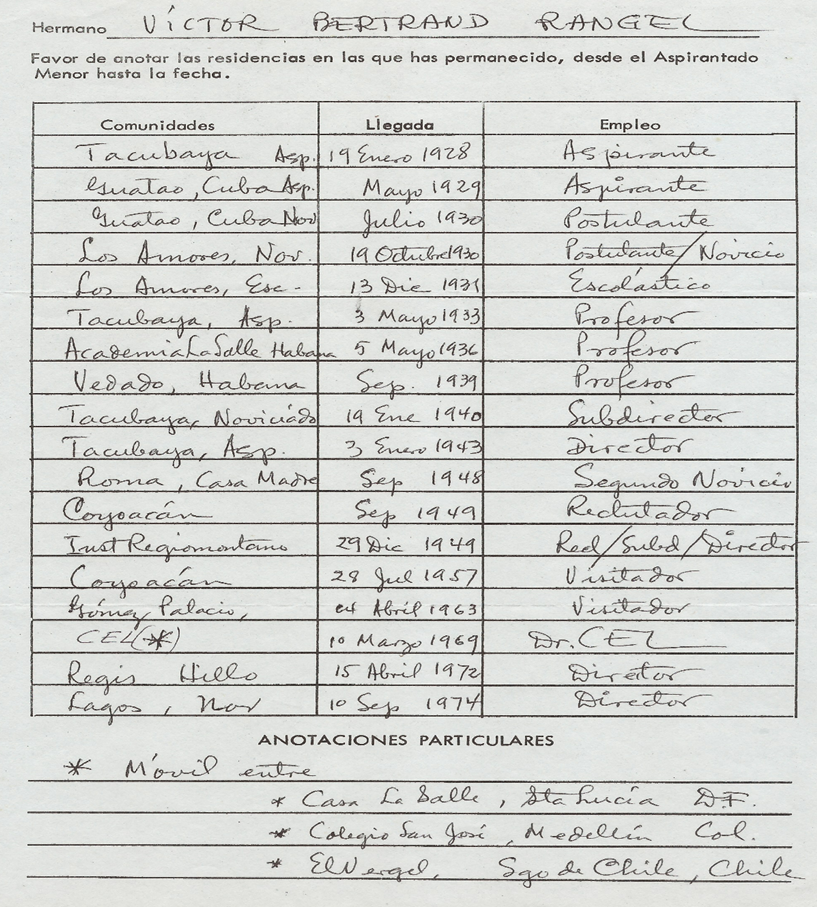 Hermano VÍCTOR BERTRAND RANGEL
Favor de anotar las residencias en las que has permanecido, desde el Aspirantado
Menor hasta la fecha.
Comunidades Llegada Empleo
Tacubaya Asp. 19 Enero 1928 Aspirante
Guatao, Cuba Asp. Mayo 1929 Aspirante
Guatao, Cuba Nov Julio 1930 Postulante
Los Amores, Nov. 19 Octubre 1930 Postulante/Novicio
Los Amores, Esc. 13 Dic 1931 Escolástico
Tacubaya, Asp. 3 Mayo 1933 Profesor
Academia La Salle Habana 5 Mayo 1936 Profesor
Vedado, Habana Sep. 1939 Profesor
Tacubaya, Noviciado 19 Ene 1940 Subdirector
Tacubaya, Asp. 3 Enero 1943 Director
Roma, Casa Madre Sep 1948 Segundo Novicio
Coyoacán Sep 1949 Reclutador
Inst Regiomontano 29 Dic 1949 Red/Subd/Director
Coyoacán 28 Jul 1957 Visitador
Gómez Palacio, 04 Abril 1963 Visitador
CEL(*) 10 Marzo 1969 Dr. CEL
Regis Hello 15 Abril 1972 Director
Lagos, Nov 10 Sep 1974 Director
ANOTACIONES PARTICULARES
* Móvil entre
* Casa La Salle, Sta Lucía D.F.
* Colegio San José, Medellín Col.
* El Vergel, Sgo de Chile, Chile